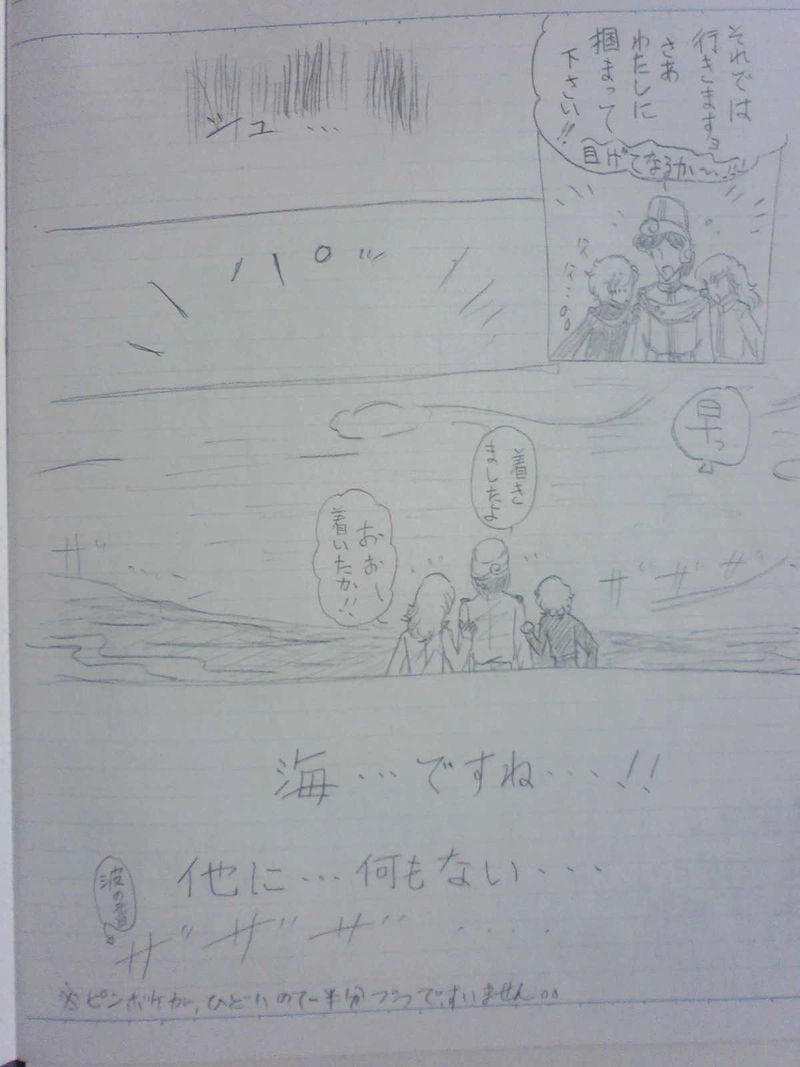 それでは
行きますョ
さあ
わたしに
掴まって
下さい!!
目げてなるか〜、!!
ジュ…
パッ
早っ
着き
ましたよ
おおし
着いたか!!
ザ゛……
ザ ザ ザ
海…ですね…、!!
他に…何もない…
波の音
ザ ザ ザ ……
※ピンボケが、ひどいので半分づつですいません。。